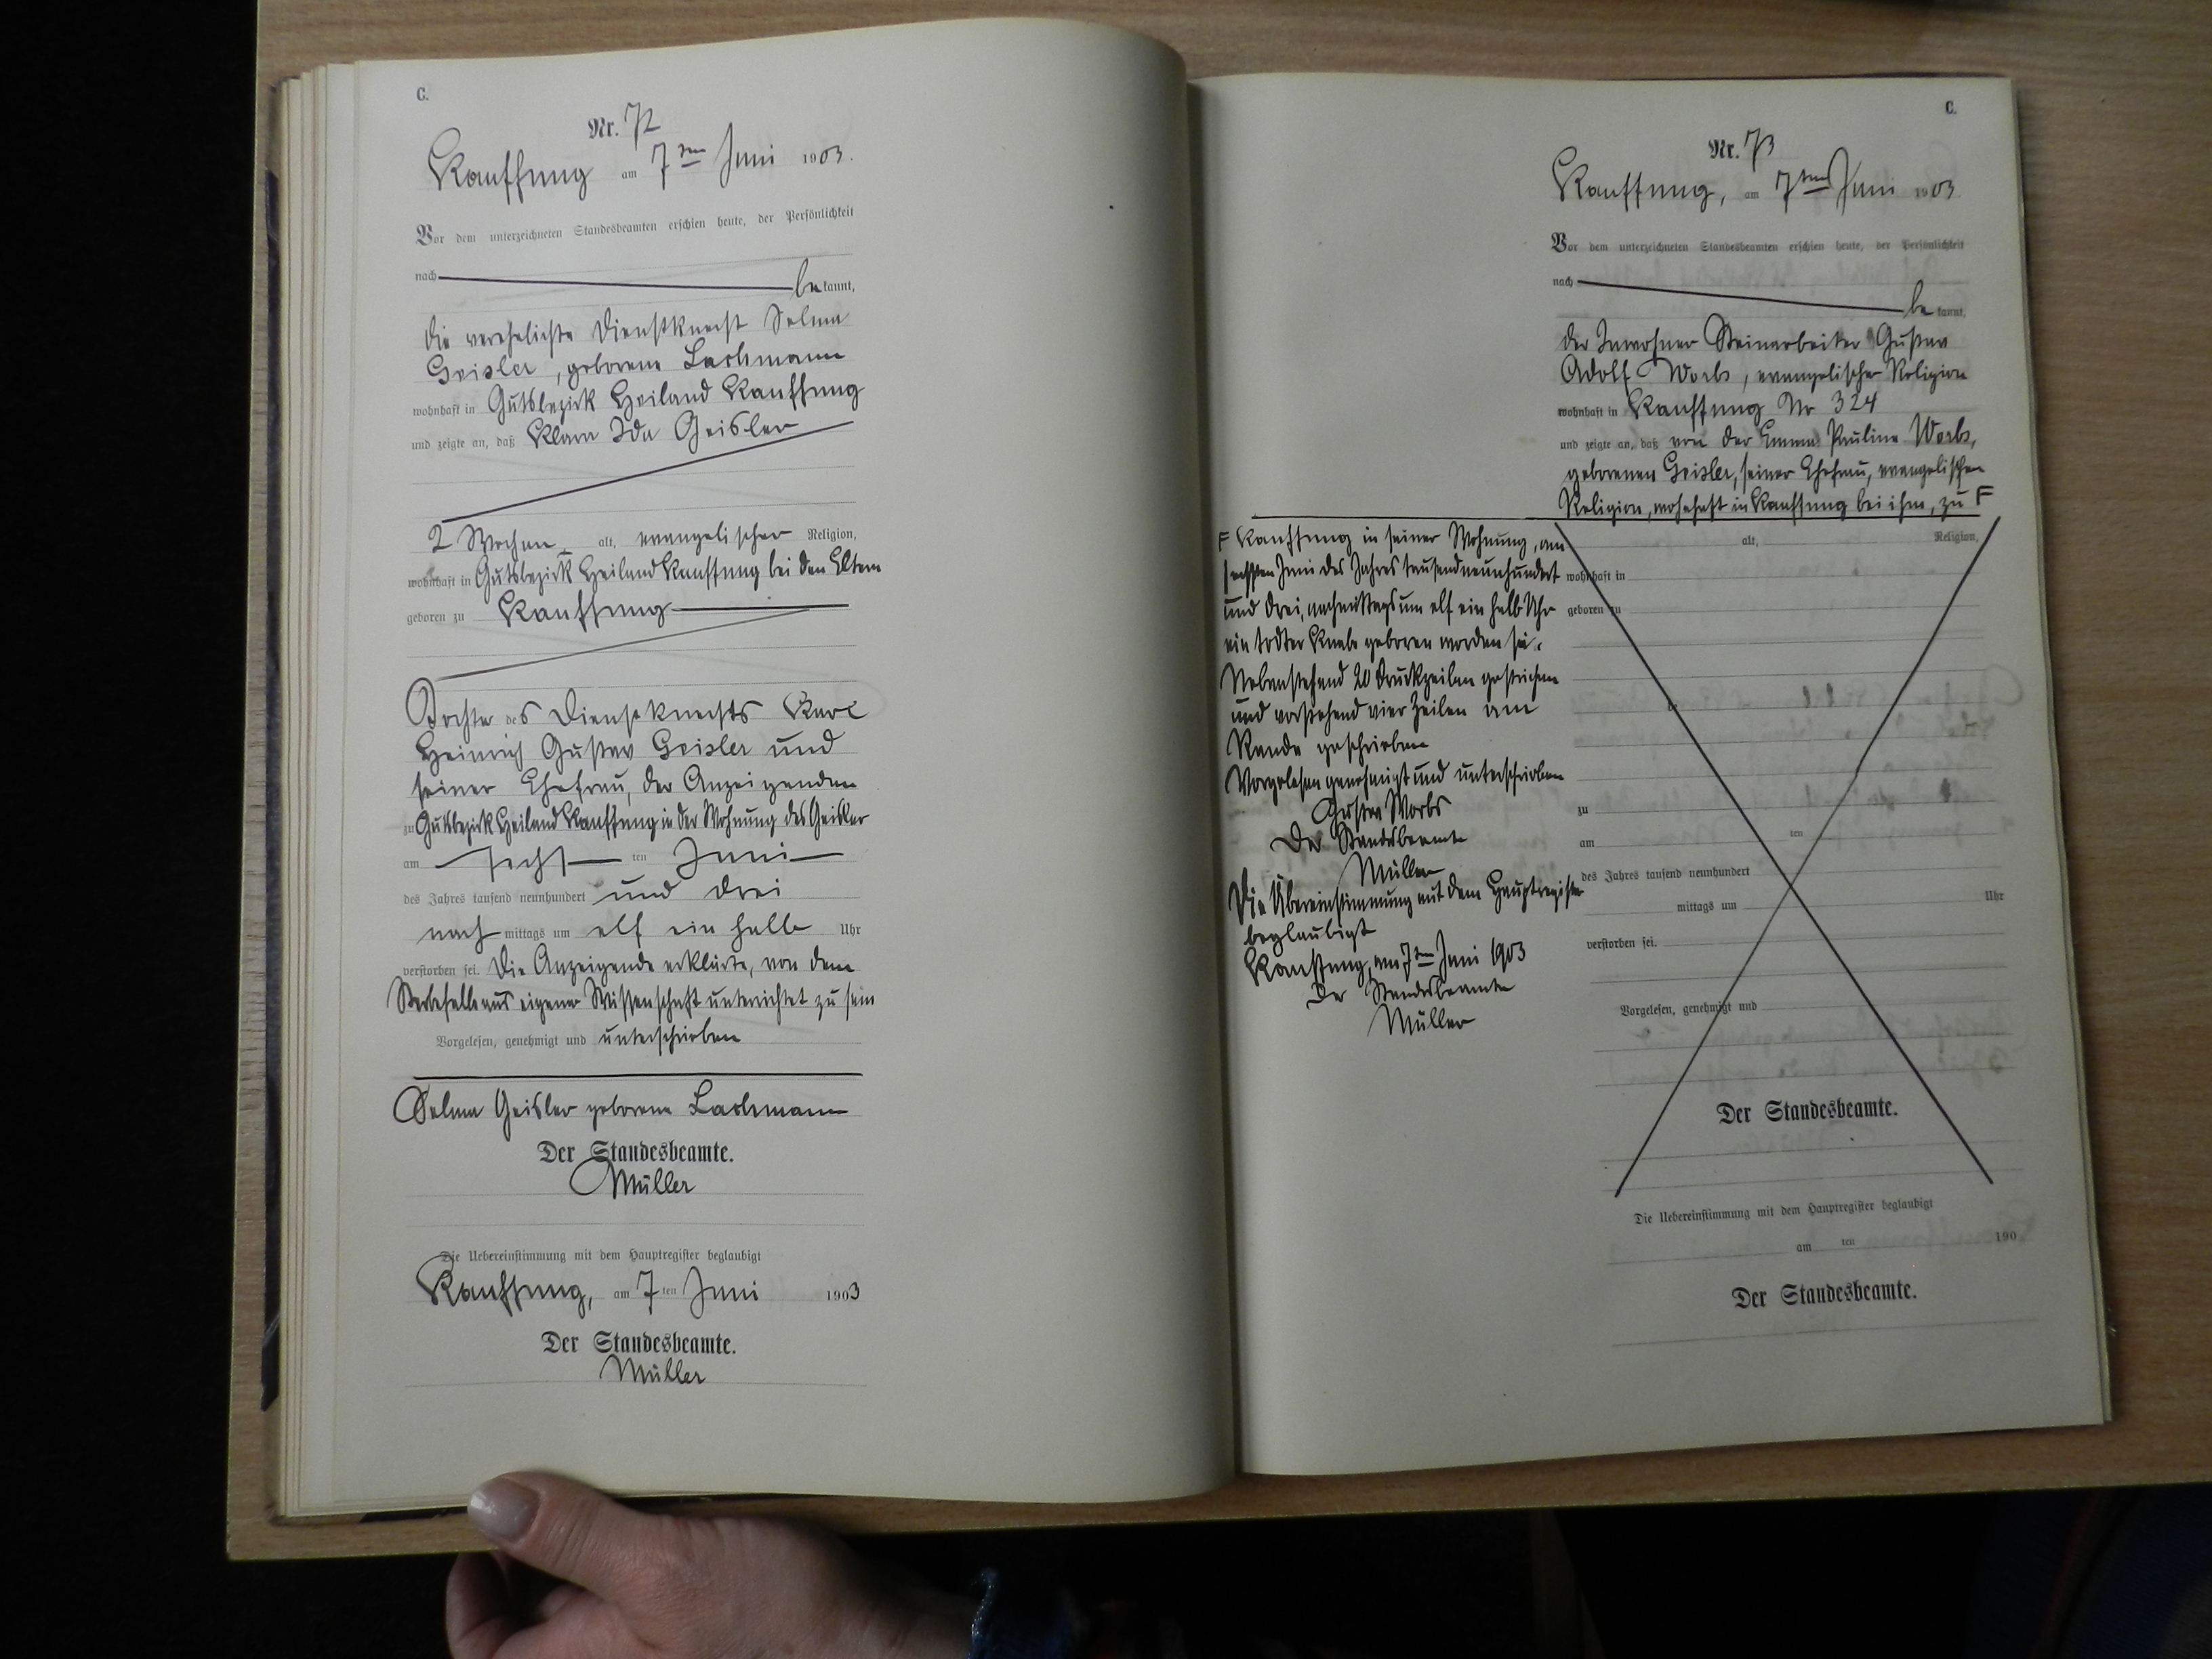 C.
Nr. 72
Kauffung am 7ten Juni 1903.
Vor dem unterzeichneten Standesbeamten erschien heute, der Persönlichkeit
nach be kannt,
die verehelichte Dienstknecht Selma
Geisler, geborene Lachmann
wohnhaft in Gutsbezirk Heiland Kauffung
und zeigte an, daß Klara Ida Geisler
2 Wochen alt, evangelischer Religion,
wohnhaft in Gutsbezirk Heiland Kauffung bei den Eltern
geboren zu Kauffung
Tochter des Dienstknechts Karl
Heinrich Gustav Geisler und
seiner Ehefrau, der Anzeigenden
zu Gutsbezirk Heiland Kauffung in der Wohnung des Geisler
am sechs ten Juni
des Jahres tausend neunhundert und drei
nach mittags um elf ein halb Uhr
verstorben sei. Die Anzeigende erklärte, von dem
Sterbefalle aus eigener Wissenschaft unterrichtet zu sein
Vorgelesen, genehmigt und unterschrieben
Selma Geisler geborene Lachmann
Der Standesbeamte.
Müller
Die Uebereinstimmung mit dem Hauptregister beglaubigt
Kauffung, am 7 ten Juni 1903
Der Standesbeamte.
Müller
C.
Nr. 73
Kauffung, am 7ten Juni 1903
Vor dem unterzeichneten Standesbeamten erschien heute, der Persönlichkeit
nach be kannt,
der Inwohner Steinarbeiter Gustav
Adolf Worbs, evangelischer Religion
wohnhaft in Kauffung Nr 324
und zeigte an, daß von der Emma Pauline Worbs,
geborenen Geisler, seiner Ehefrau, evangelischen
Religion, wohnhaft in Kauffung bei ihm, zu F
F Kauffung in seiner Wohnung, am
sechsten Juni des Jahres tausendneunhundert
und drei, nachmittags um elf ein halb Uhr
ein todter Knabe geboren worden sei.
Nebenstehend 20 Druckzeilen gestrichen
und vorstehend vier Zeilen am
Rande geschrieben
Vorgelesen genehmigt und unterschrieben
Gustav Worbs
Der Standesbeamte
Müller
Die Übereinstimmung mit dem Hauptregister
beglaubigt
Kauffung, am 7ten Juni 1903
Der Standesbeamte
Müller
alt, Religion,
wohnhaft in
geboren zu
zu
am ten
des Jahres tausend neunhundert
mittags um Uhr
verstorben sei.
Vorgelesen, genehmigt und
Der Standesbeamte.
Die Uebereinstimmung mit dem Hauptregister beglaubigt
am ten 190
Der Standesbeamte.